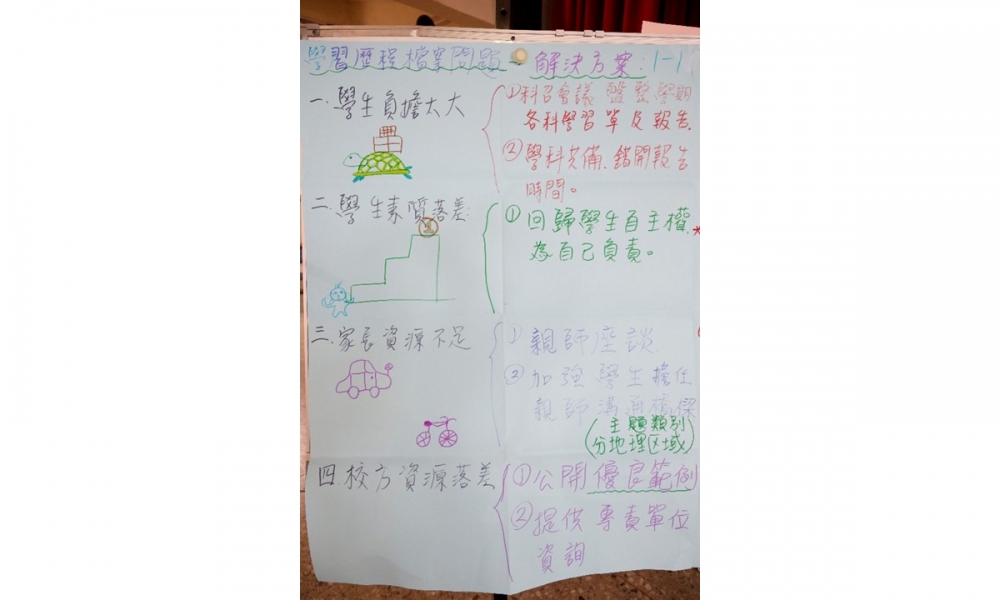 學習歷程檔案問題 - 解決方案:1-1
一.學生負擔太大
①科召會議 盤整學期
各科學習單及報告.
②學科共備、錯開報告
時間。
二.學生素質落差
①回歸學生自主權.*
為自己負責。
三.家長資源不足
①親師座談.
②加強學生擔任
親師溝通橋樑
(主題類別
分地理区域)
四.校方資源落差
①公開優良範例
②提供專責單位
資詢